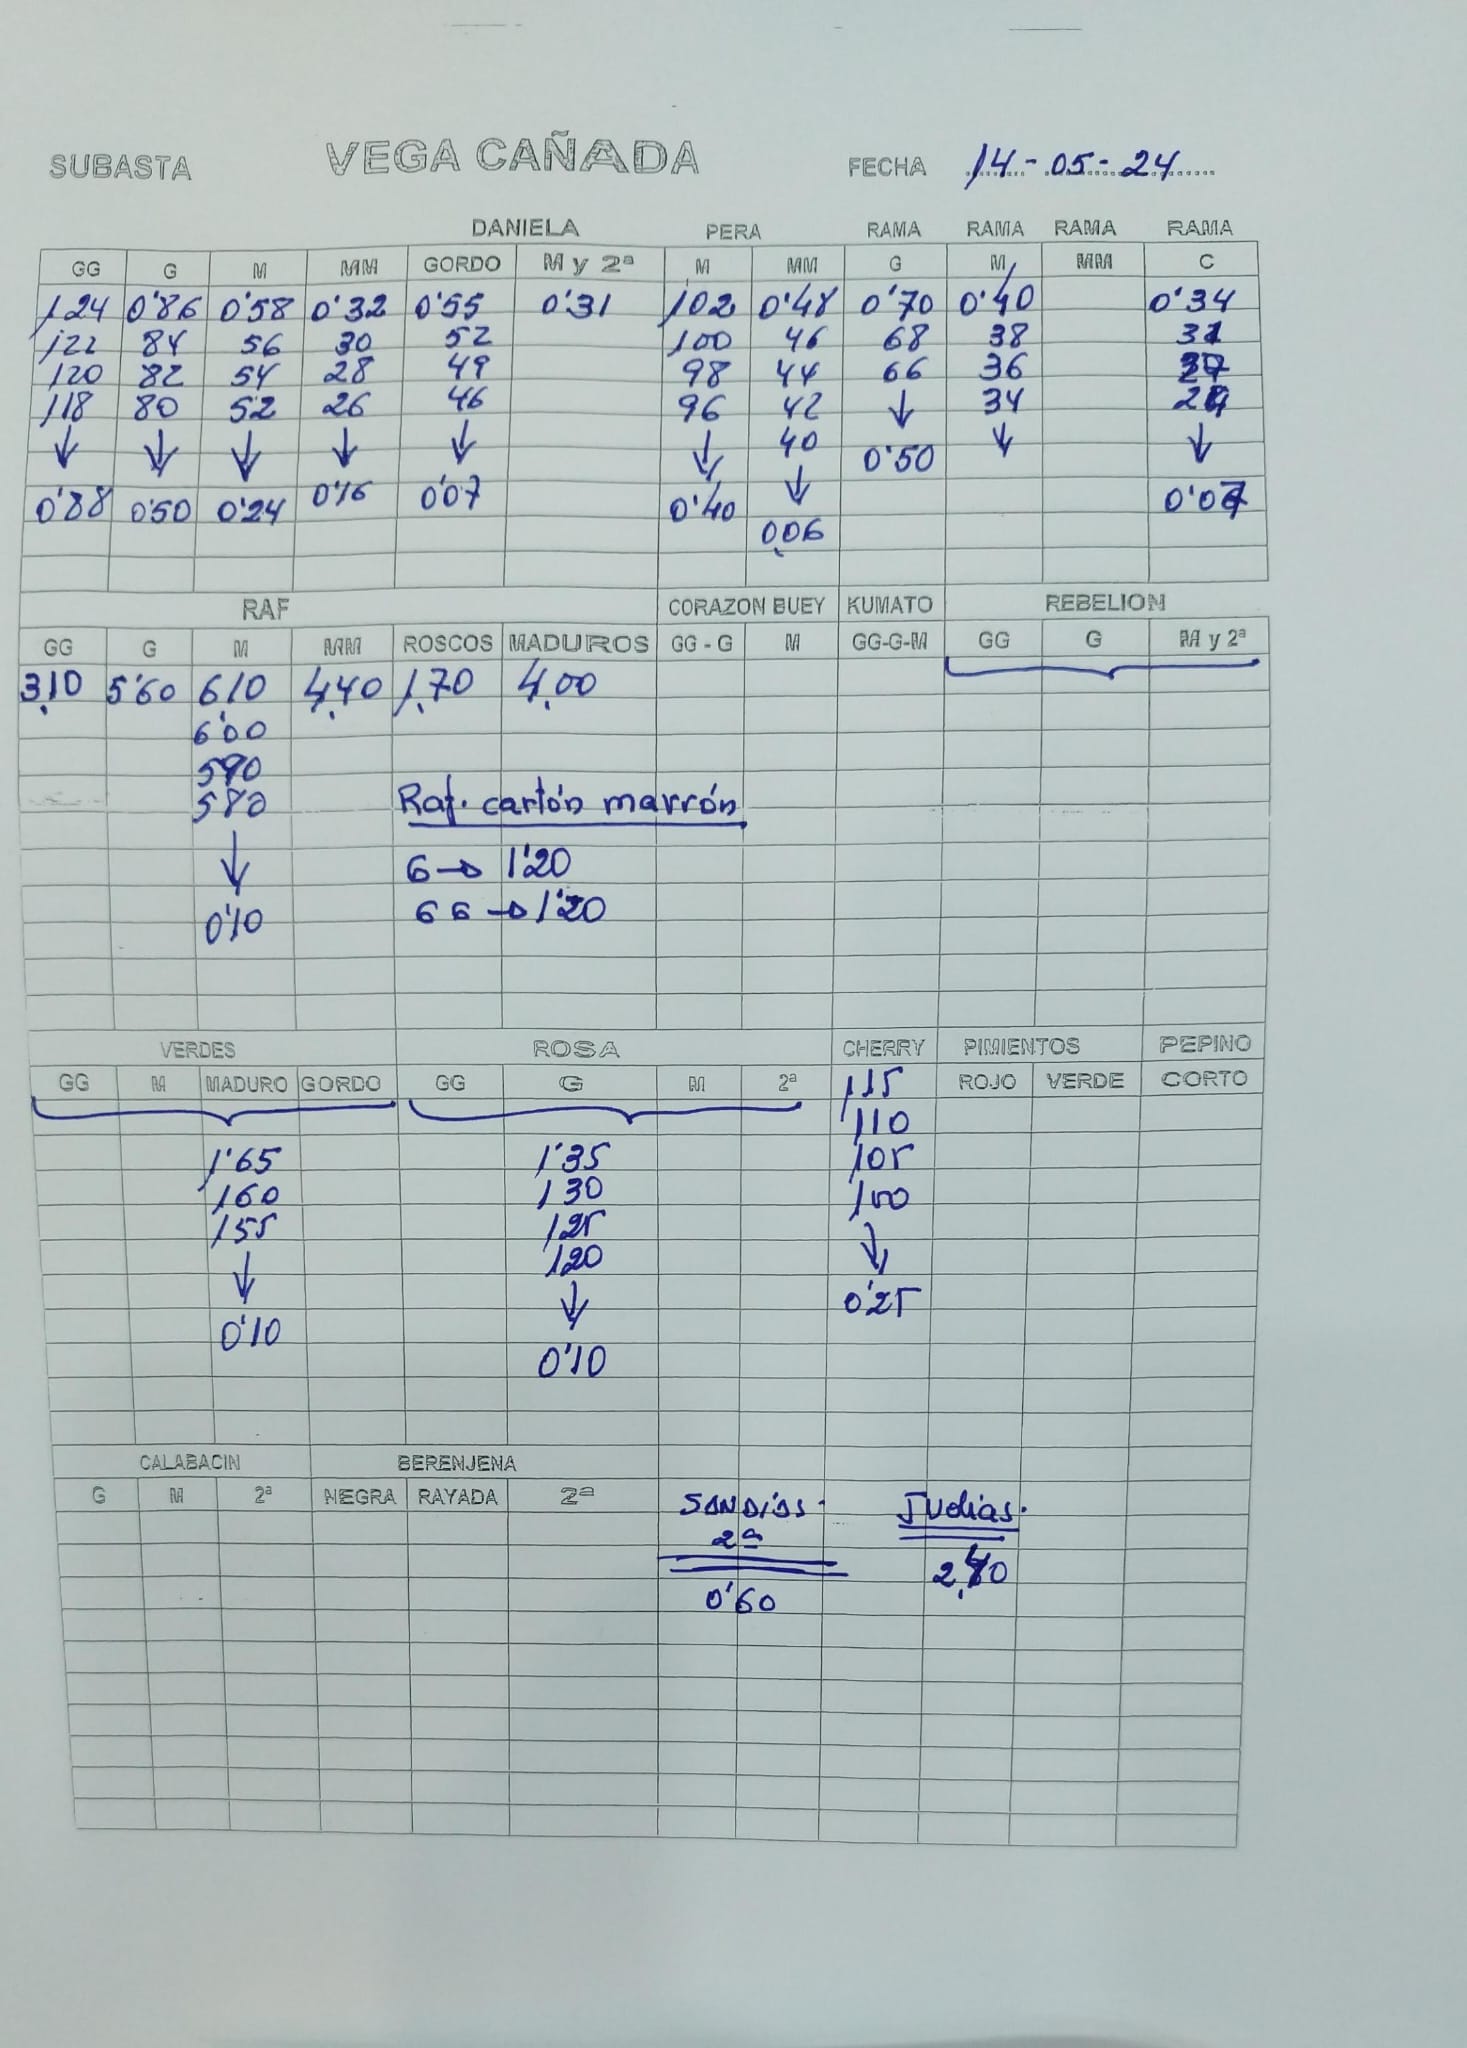 SUBASTA VEGA CAÑADA FECHA 14-05-24
DANIELA PERA RAMA RAMA RAMA RAMA
GG G M MM GORDO M y 2ª M MM G M MM C
1,24 0'86 0'58 0'32 0'55 0'31 102 0'48 0'70 0'40 0'34
122 84 56 30 52 100 46 68 38 31
120 82 54 28 49 98 44 66 36
118 80 52 26 46 96 42 ↓ 34
↓ ↓ ↓ ↓ ↓ ↓ 40 0'50 ↓ ↓
0'88 0'50 0'24 0'16 0'07 0'40 ↓ 0'07
0,06
RAF CORAZON BUEY KUMATO REBELION
GG G M MM ROSCOS MADUROS GG - G M GG-G-M GG G M y 2ª
3,10 5'60 6'10 4,40 1,70 4,00
6'00
590
580 Raf. cartón marrón
↓ 6→ 1'20
0'10 66→1'20
VERDES ROSA CHERRY PIMIENTOS PEPINO
GG M MADURO GORDO GG G M 2ª 115 ROJO VERDE CORTO
110
1'65 1'35 105
160 130 100
155 125 ↓
↓ 120 0'25
0'10 ↓
0'10
CALABACIN BERENJENA
G M 2ª NEGRA RAYADA 2ª SANDÍAS. Judías.
2ª
0'60